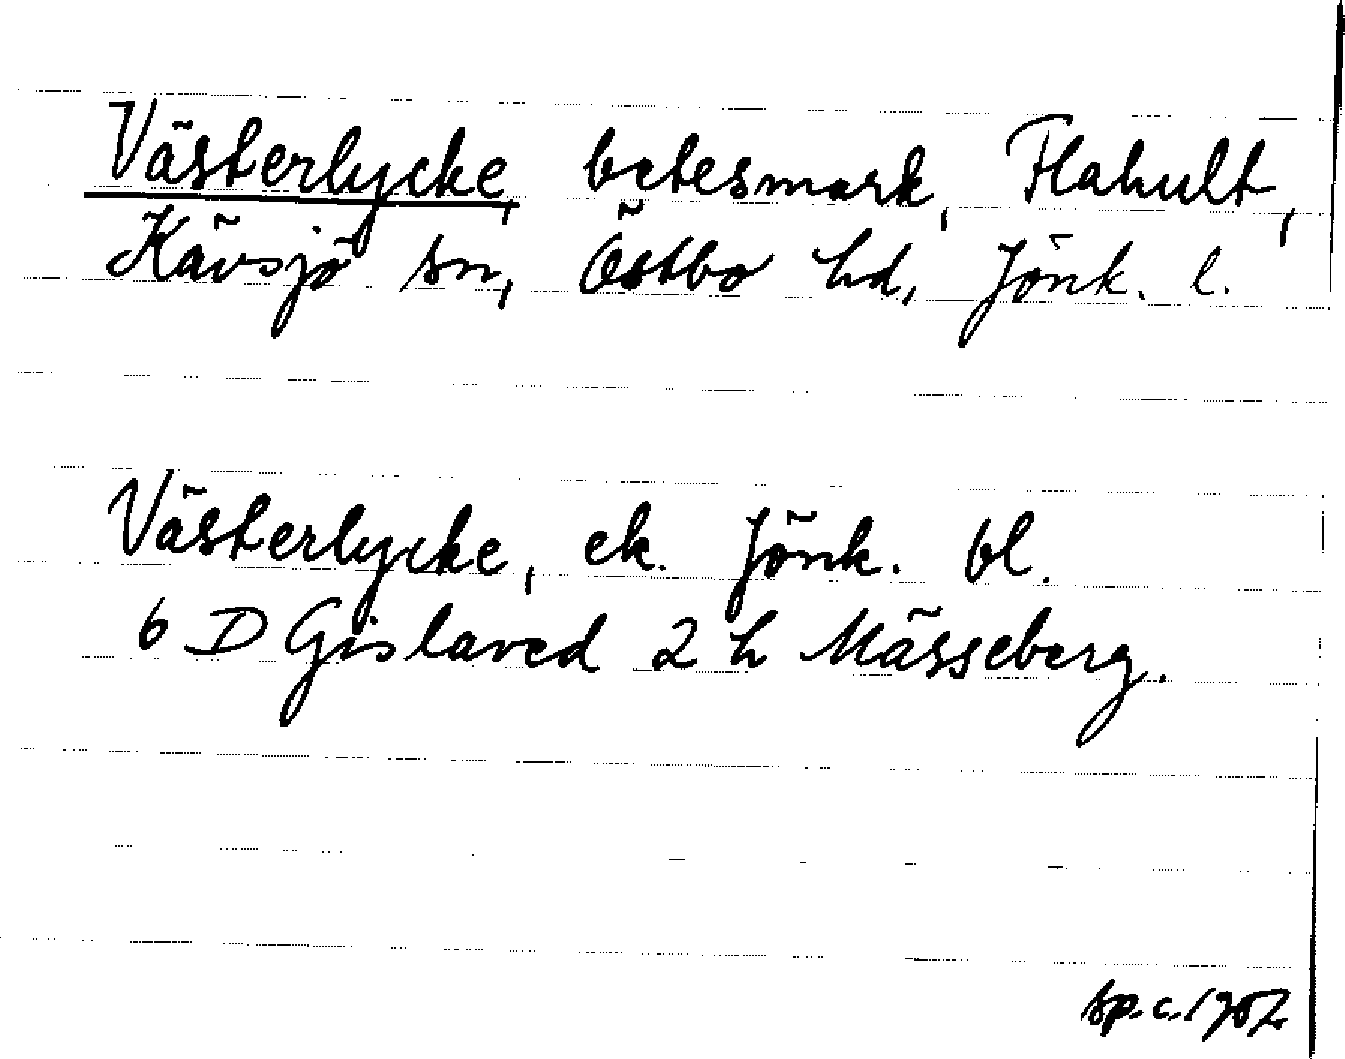 Västerlycke, betesmark, Flahult,
Kävsjö sn, Östbo hd, Jönk. l.
Västerlycke, ek. Jönk. bl.
6 D Gislaved 2 h Mässeberg.
sp.c. 1952